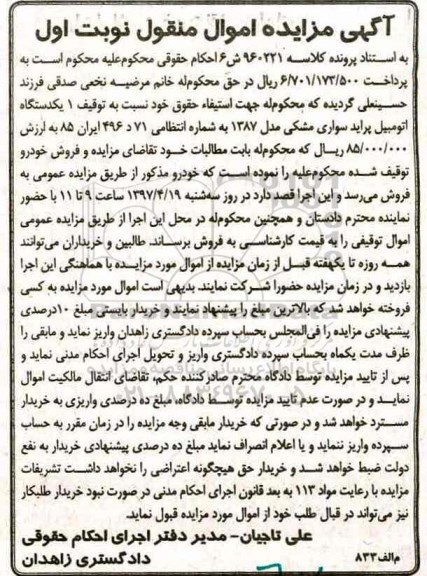 آگهی مزایده اموال منقول نوبت اول
به استناد پرونده کلاسه ۹۶۰۲۲۱ ش۶ احکام حقوقی محکوم‌علیه محکوم است به
پرداخت ۶/۷۰۱/۱۷۳/۵۰۰ ریال در حق محکوم‌له خانم مرضیه نخعی صدقی فرزند
حسینعلی گردیده که محکوم‌له جهت استیفاء حقوق خود نسبت به توقیف ۱ یکدستگاه
اتومبیل پراید سواری مشکی مدل ۱۳۸۷ به شماره انتظامی ۷۱ د ۴۹۶ ایران ۸۵ به ارزش
۸۵/۰۰۰/۰۰۰ ریال که محکوم‌له بابت مطالبات خود تقاضای مزایده و فروش خودرو
توقیف شده محکوم‌علیه را نموده است که خودرو مذکور از طریق مزایده عمومی به
فروش می‌رسد و این اجرا قصد دارد در روز سه‌شنبه ۱۳۹۷/۴/۱۹ ساعت ۹ تا ۱۱ با حضور
نماینده محترم دادستان و همچنین محکوم‌له در محل این اجرا از طریق مزایده عمومی
اموال توقیفی را به قیمت کارشناسی به فروش برساند. طالبین و خریداران می‌توانند
همه روزه تا یکهفته قبل از زمان مزایده از اموال مورد مزایده با هماهنگی این اجرا
بازدید و در زمان مزایده حضورا شرکت نمایند. بدیهی است اموال مورد مزایده به کسی
فروخته خواهد شد که بالاترین مبلغ را پیشنهاد نمایند و خریدار بایستی مبلغ ۱۰درصدی
پیشنهادی مزایده را فی‌المجلس بحساب سپرده دادگستری زاهدان واریز نماید و مابقی را
ظرف مدت یکماه بحساب سپرده دادگستری واریز و تحویل اجرای احکام مدنی نماید و
پس از تایید مزایده توسط دادگاه محترم صادرکننده حکم، تقاضای انتقال مالکیت اموال
نماید و در صورت عدم تایید مزایده توسط دادگاه، مبلغ ده درصدی واریزی به خریدار
مسترد خواهد شد و در صورتی که خریدار مابقی وجه مزایده را در زمان مقرر به حساب
سپرده واریز ننماید و یا اعلام انصراف نماید مبلغ ده درصدی پیشنهادی خریدار به نفع
دولت ضبط خواهد شد و خریدار حق هیچگونه اعتراضی را نخواهد داشت تشریفات
مزایده با رعایت مواد ۱۱۳ به بعد قانون اجرای احکام مدنی در صورت نبود خریدار طلبکار
نیز می‌تواند در قبال طلب خود از اموال مورد مزایده قبول نماید.
علی تاجیان- مدیر دفتر اجرای احکام حقوقی
دادگستری زاهدان
م‌الف۸۳۳